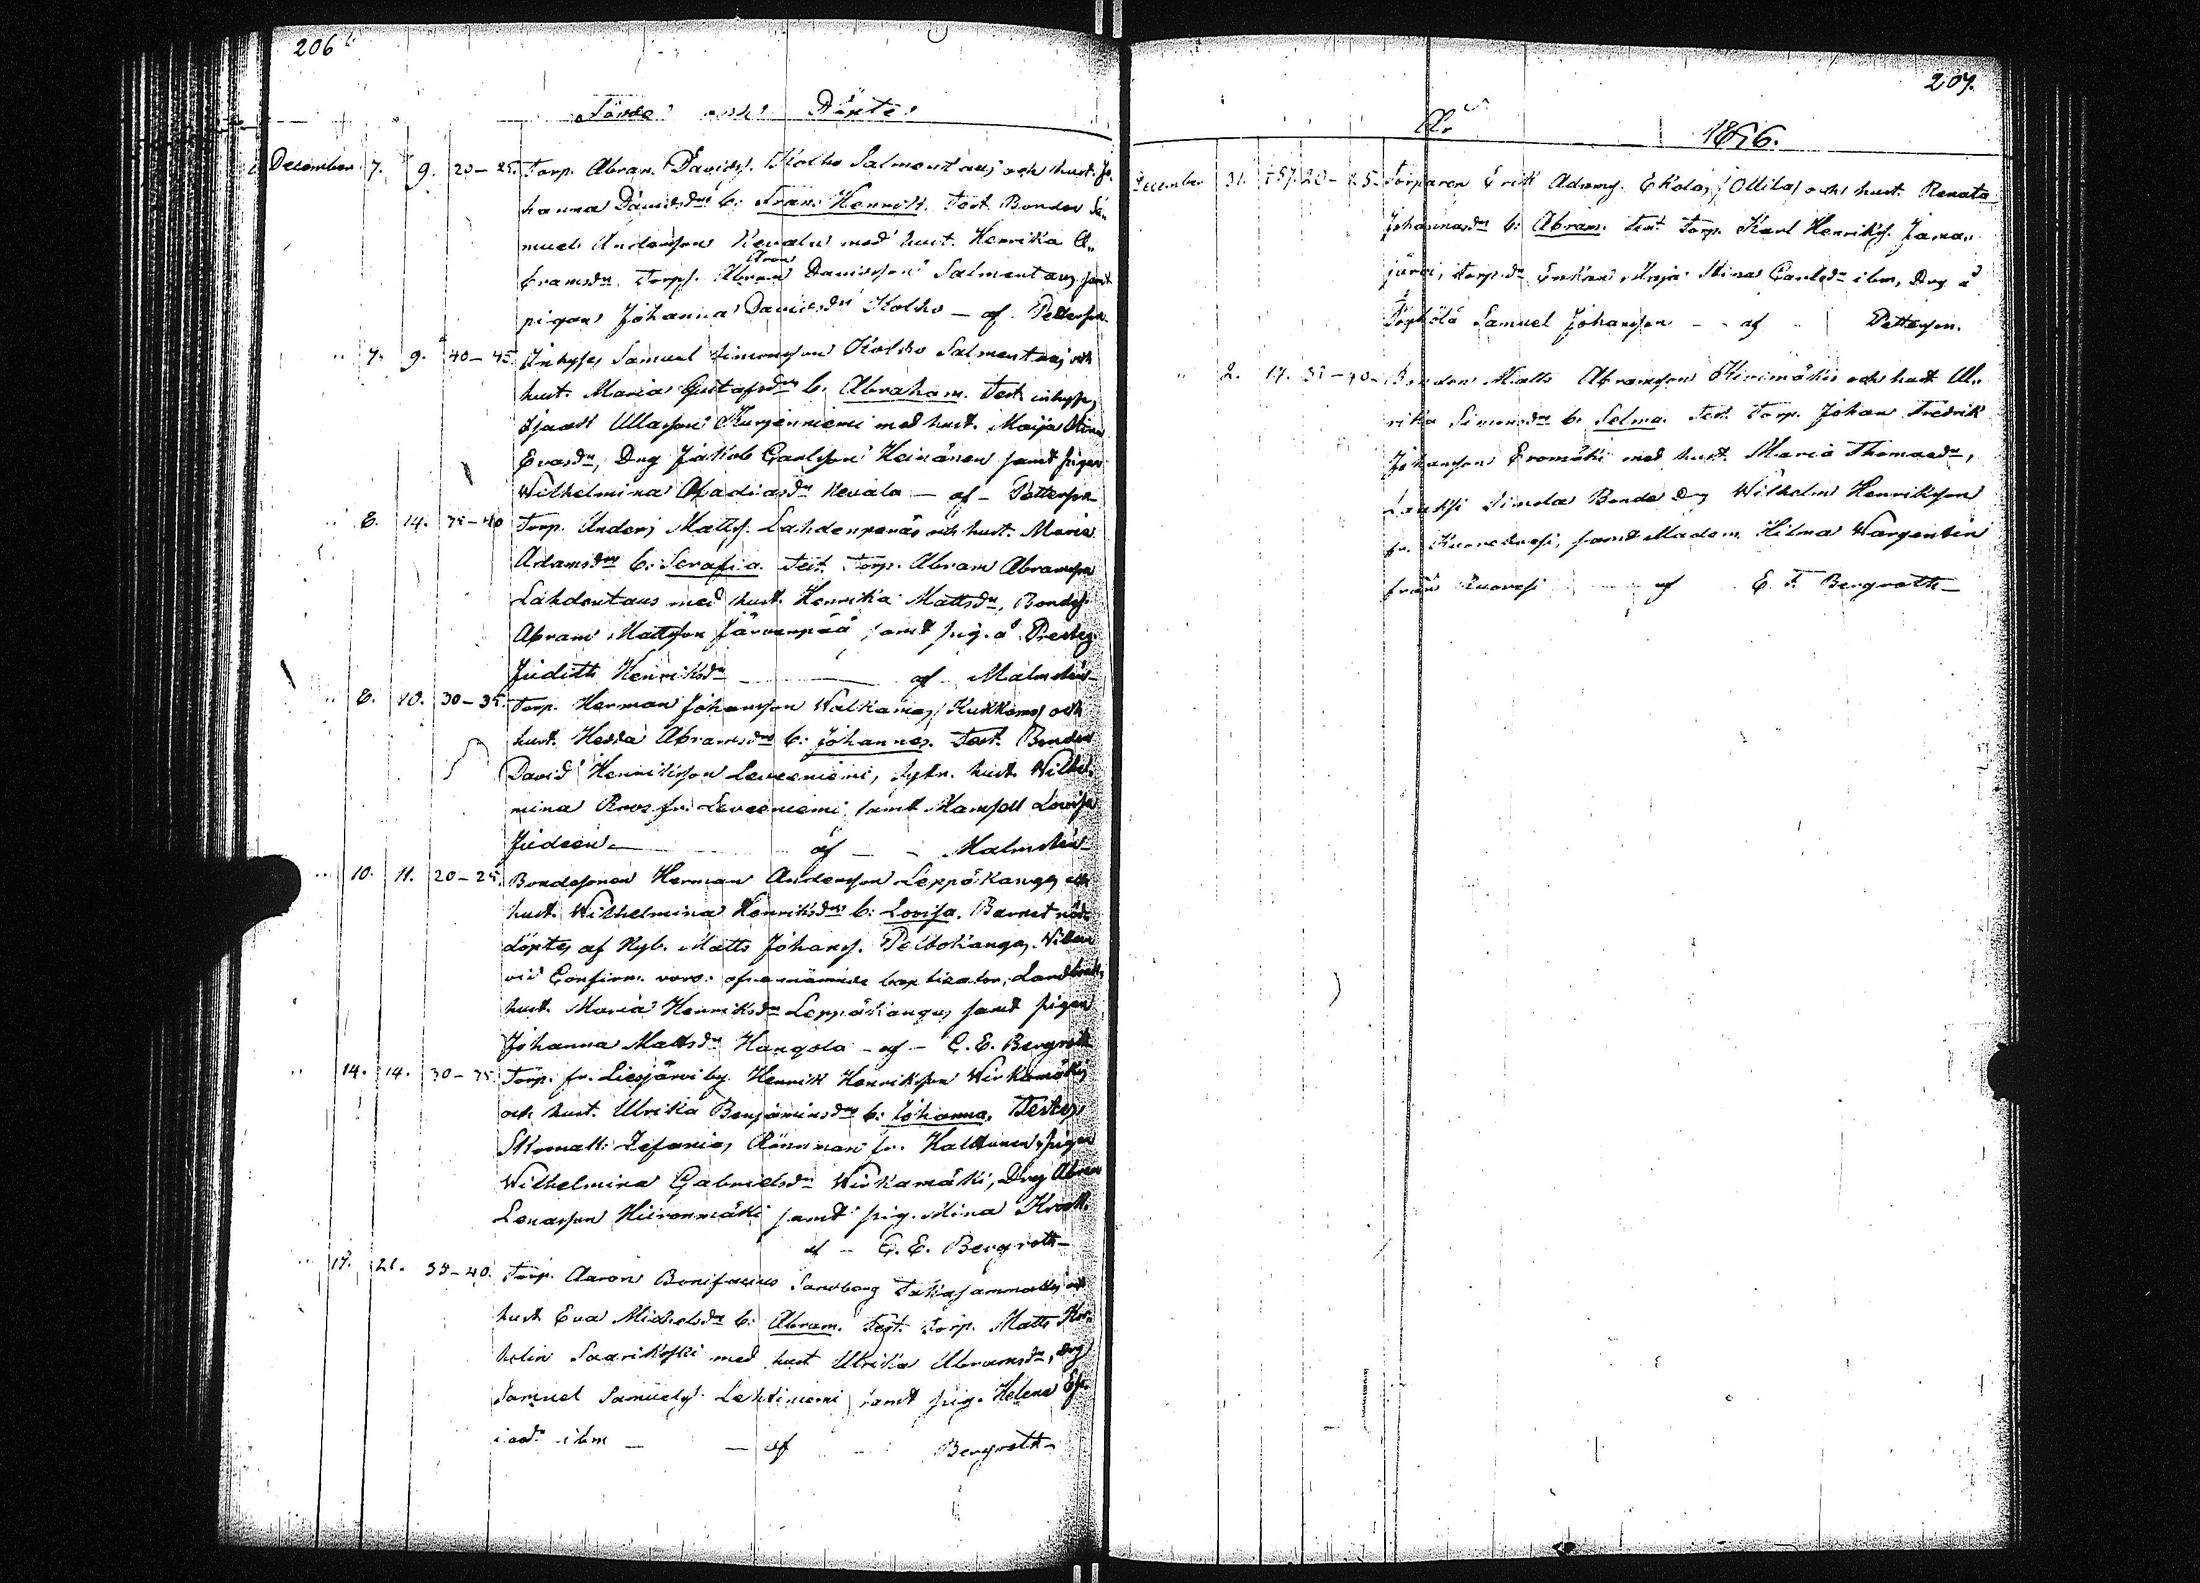 206
Födde och Döpte
December 7. 9. 20-25. Torp. Abram Davidsf. Kolho Salmentaus och hust. Jo.
hanna Davidsdr b: Frans Henrik. Test. Bonden Sa.
muel Andersson Kevalu med hust. Henrika A..
bramsdr, Torps. Abram Davidsson Salmentaus samt
pigan Johanna Davidsdr Kolho — af Petterson
" 7. 9. 40-45. Inhyses Samuel Simonsson Kolho Salmentaus och
hust. Maria Gustafsdr b. Abraham. Test inhyses
Isaak Ullasson Kurjenniemi med hust. Maija Stina
Evasdr, Drg Jakob Carlsson Heinänen samt pigan
Wilhelmina Abadiasdr Kevala — af — Petterson
" 8. 14. 35-40 Torp. Anders Mattsf. Lahdenperäs och hust. Maria
Adamsdr b: Serafia. Test. Torp. Abram Abramsson
Lahdentaus med hust. Henrika Mattsdr, Bondes.
Abram Mattsson Järvenpää samt pig. å Prestg.
Judith Henriksdr — af Malmstén
" 8. 10. 30-35. Torp. Herman Johansson Walkamas, Kukkams och
hust. Hedda Abramsdr b: Johannes. Test. Bonden
David Henriksson Leveeniemi, hust. Wilhel.
mina Roos fr. Leveeniemi samt Mamsell Lovisa
Judeen — af — Malmstén
" 10. 11. 20-25. Bondesonen Herman Andersson Leppäkangas och
hust. Wilhelmina Henriksdr b: Lovisa. Barnet nöd.
döptes af Nyb. Matts Johansf. Peltokangas. Vittnen
vid Confirm. voro: ofvannämnde baptisator, Landbonde
hust. Maria Henriksdr Leppäkangas samt pigan
Johanna Mattsdr Hangola — af — C. E. Bergroth
" 14. 14. 30-35. Torp. fr. Liesjärvi by. Henrik Henriksson Wirkamäkis
och hust. Ulrika Benjaminsdr b: Johanna. Testes
Skomak: Zefanias Rönnman fr. Halkunen, pigan
Wilhelmina Gabrielsdr Wirkamäki, Drg Abram
Lenasson Hiironmäki samt pig. Stina Krook.
af — C. E. Bergroth —
" 17. 21. 35-40. Torp. Aaron Bonifacius Sandborg Takasammalis och
hust Eva Michelsdr b: Abram. Test. Torp. Matts
holin Saarikoski med hust Ulrika Abramsdr, drg
Samuel Samuelsf. Lehtiniemi samt pig. Helena
iasdr ibm — — af — Bergroth —
207.
År 1876.
December 31. 20-25. Torparen Erik Adamsf. Ekolas, Ollilas och hust. Renata
Johannasdr b: Abram. Test Torp. Karl Henriksf. Jama..
järvi, Maja Stina Carlsdr ibm, Drg å
Samuel Johansson — af — Petterson.
" 2. 17. 35-40. Bonden Matts Abramsson Kivimäkis och hust Ul..
rika Simonsdr b. Selma. Test. Torp. Johan Fredrik
Johansson Eromäki med hust. Maria Thomasdr,
Simola Bonde Drg Wilhelm Henriksson
fr. samt Madem. Hilma Wargentin
från Kuorefi — af E. F. Bergroth —